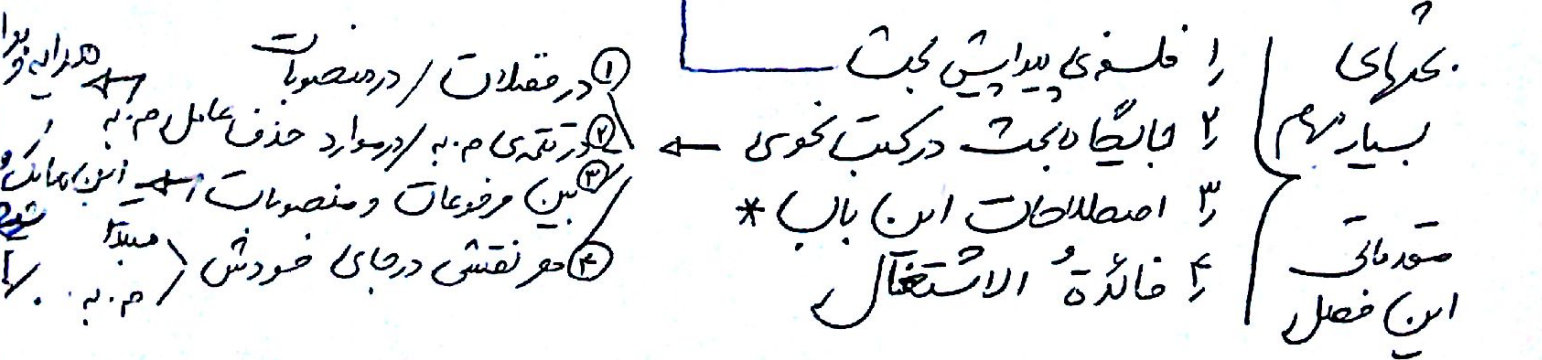 بحثهای
بسیار مهم
مقدماتی
این فصل
۱ر فلسفه‌ی پیدایش بحث
۲ر جایگاه بحث در کتب نحوی ←
۳ر اصطلاحات این باب *
۴ر فائدةُ الاشتغال
① در فضلات / در منصوبات ←
② در تتمه‌ی م.به / در موارد حذف عامل م.به
③ بین مرفوعات و منصوبات ← ابن مالک
④ هر نقشی در جای خودش
مبتدا
م.به